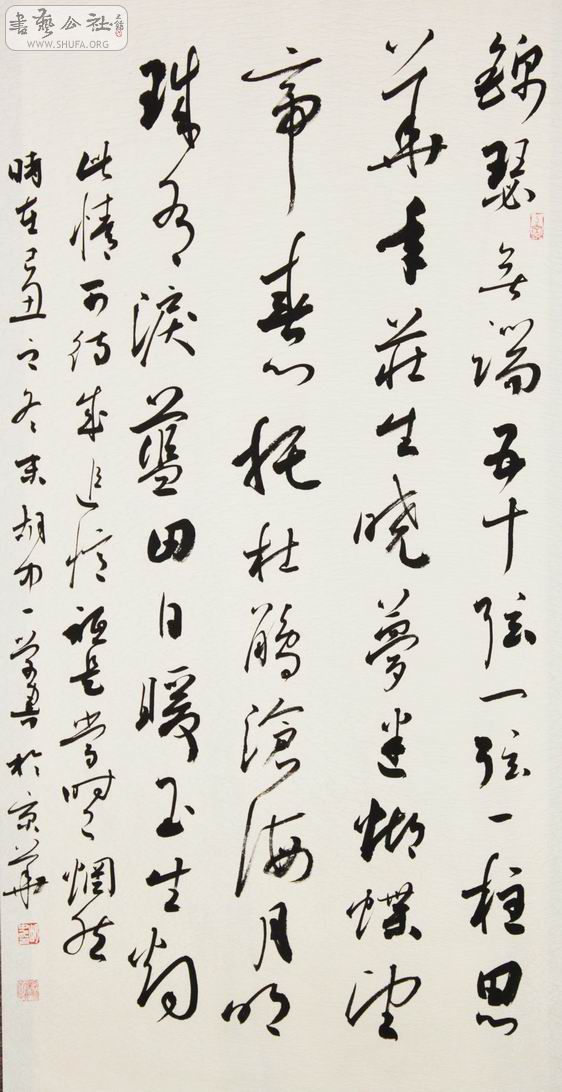 書藝公社
WWW.SHUFA.ORG
錦瑟無端五十弦一弦一柱思
華年莊生曉夢迷蝴蝶望
帝春心托杜鵑滄海月明
珠有淚藍田日暖玉生烟
此情可待成追憶祇是當時已惘然
時在己丑之冬末胡一書於京華